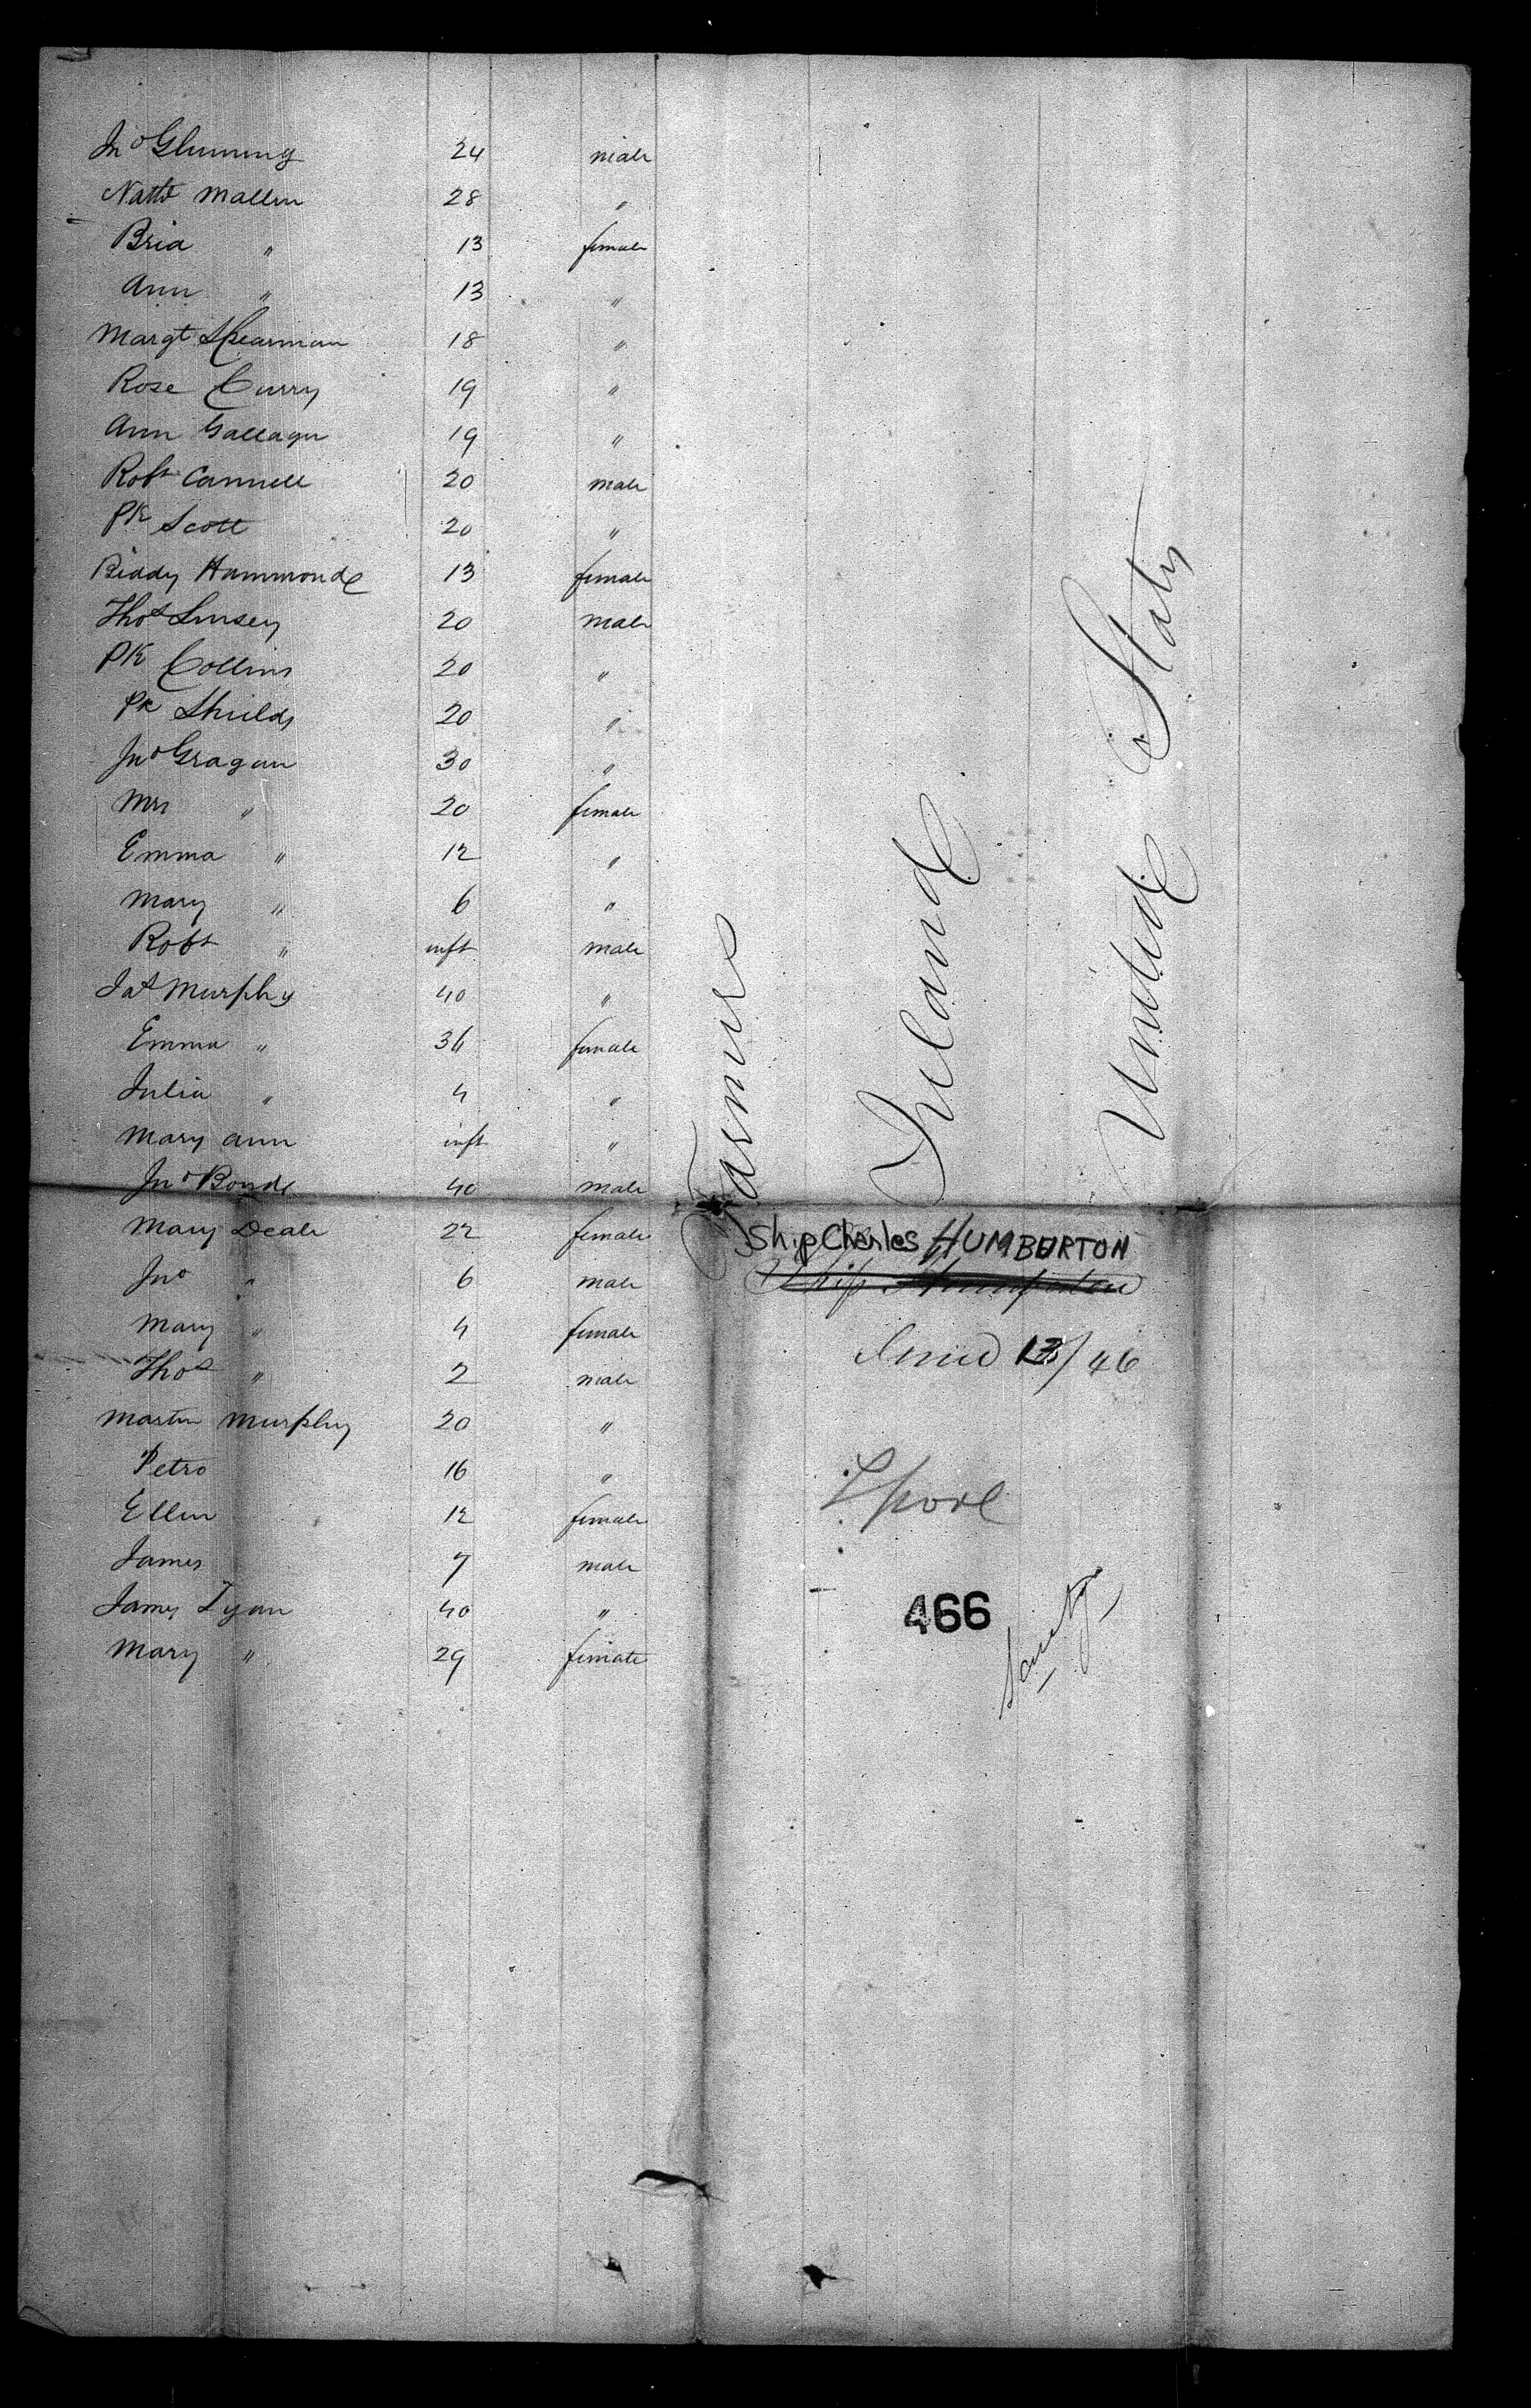 Jno Gluming 24 male
Natth Mallin 28 "
Brid " 13 female
Ann " 13 "
Margt Shearman 18 "
Rose Curry 19 "
Ann Gallagn 19 "
Robt Cannell 20 male
Pk Scott 20 "
Biddy Hammond 13 female
Thos Linsey 20 male
PK Collins 20 "
Pk Shields 20 "
Jno Gragan 30 "
Mrs " 20 female
Emma " 12 "
Mary " 6 "
Robt " inft male
Jas Murphy 40 "
Emma " 36 female
Julia " 4 "
Mary Ann inft "
Jno Bond 40 male
Mary Deale 22 female
Jno " 6 male
Mary " 4 female
Thos " 2 male
Martin Murphy 20 "
Petro 16 "
Ellen 12 female
James 7 male
James Tyan 40 "
Mary " 29 female
Farmers
Ireland
United States
Ship Charles HUMBURTON
Ship
June 13/46
Lpool
466